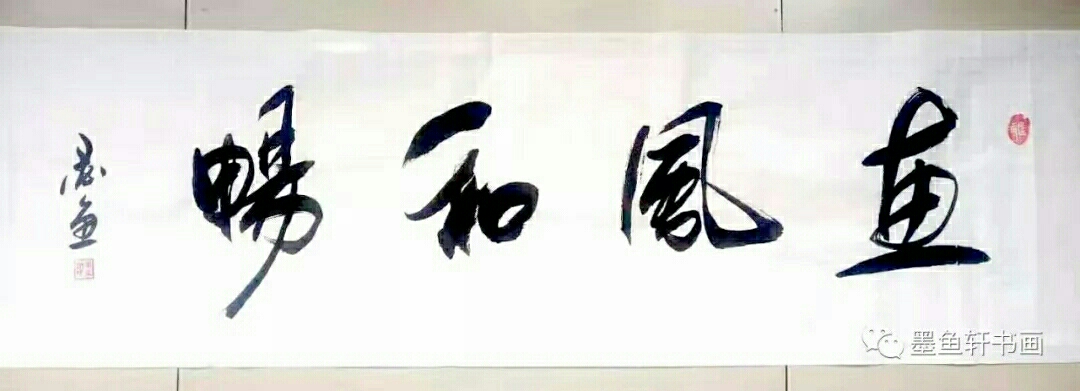 惠風和暢
墨鱼
墨鱼轩书画